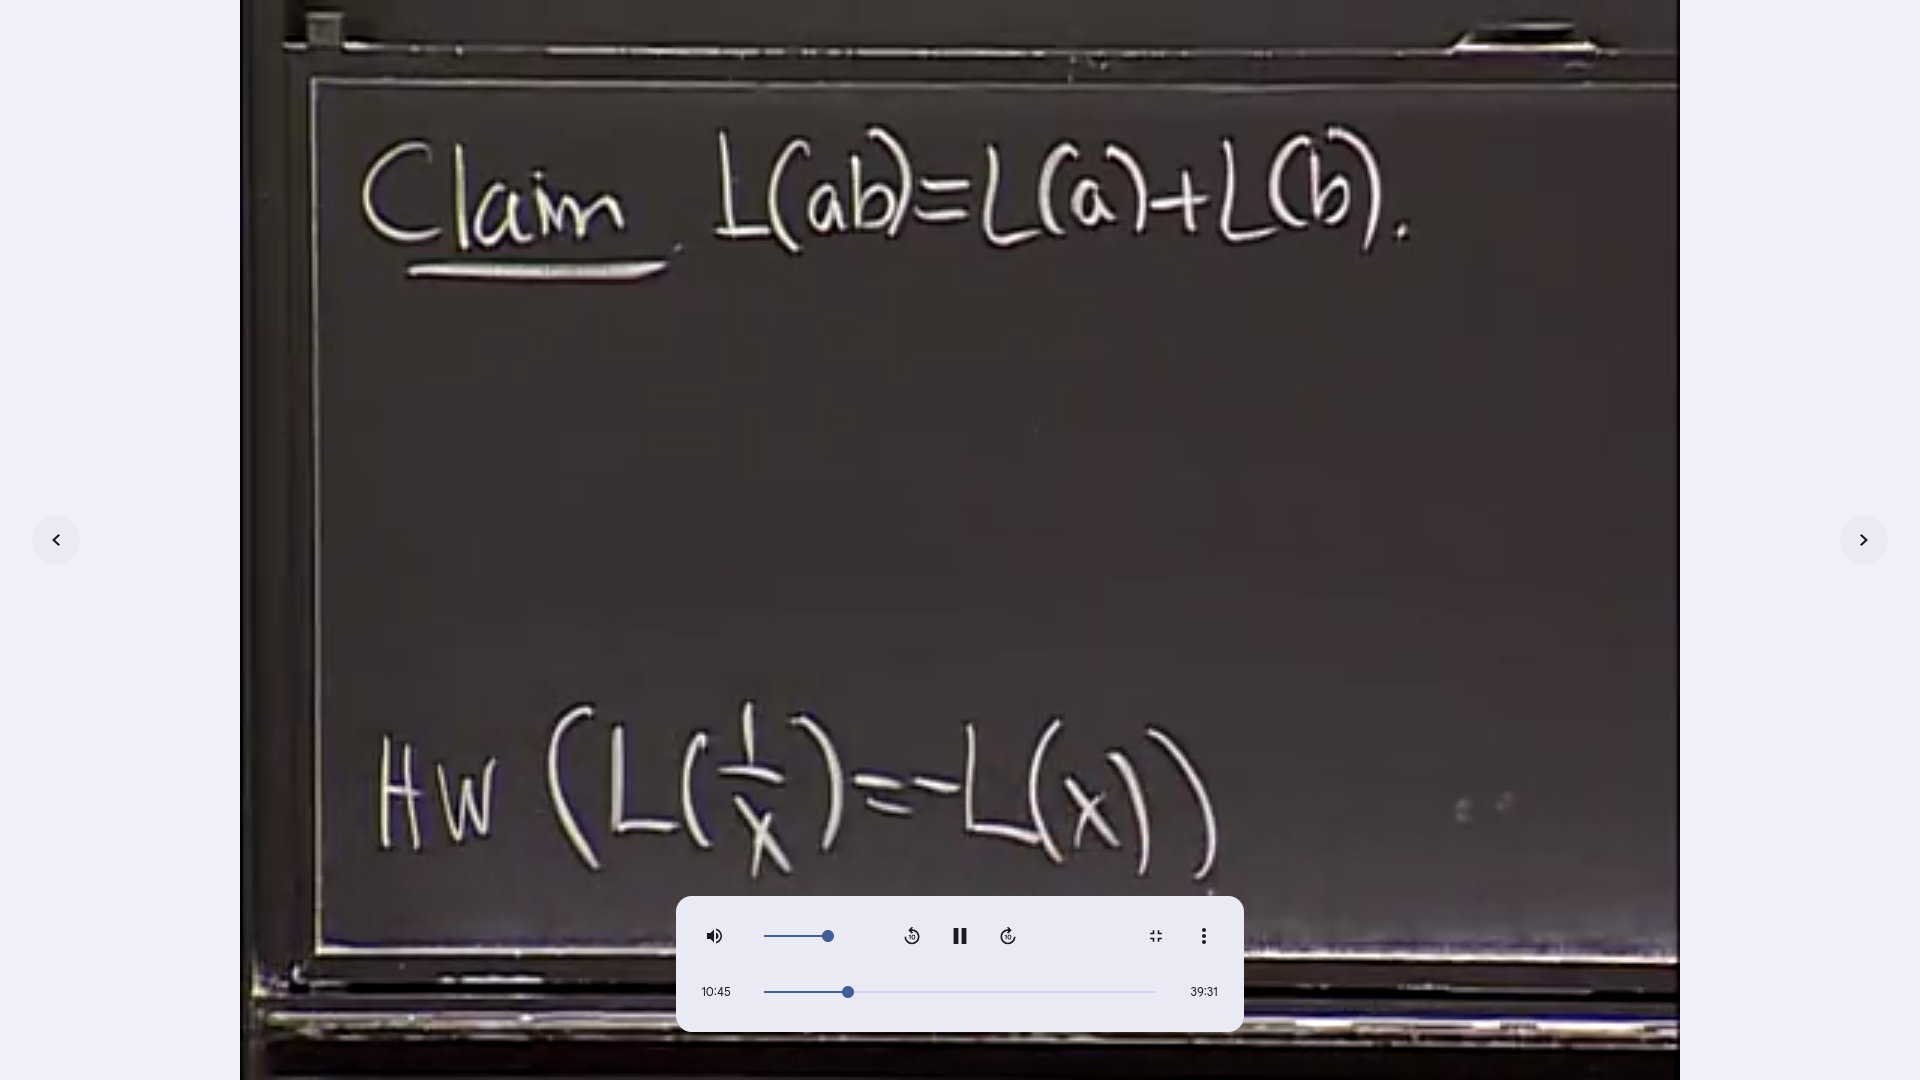 Claim L(ab)=L(a)+L(b).
HW (L(1/x)=-L(x))
10:45
39:31